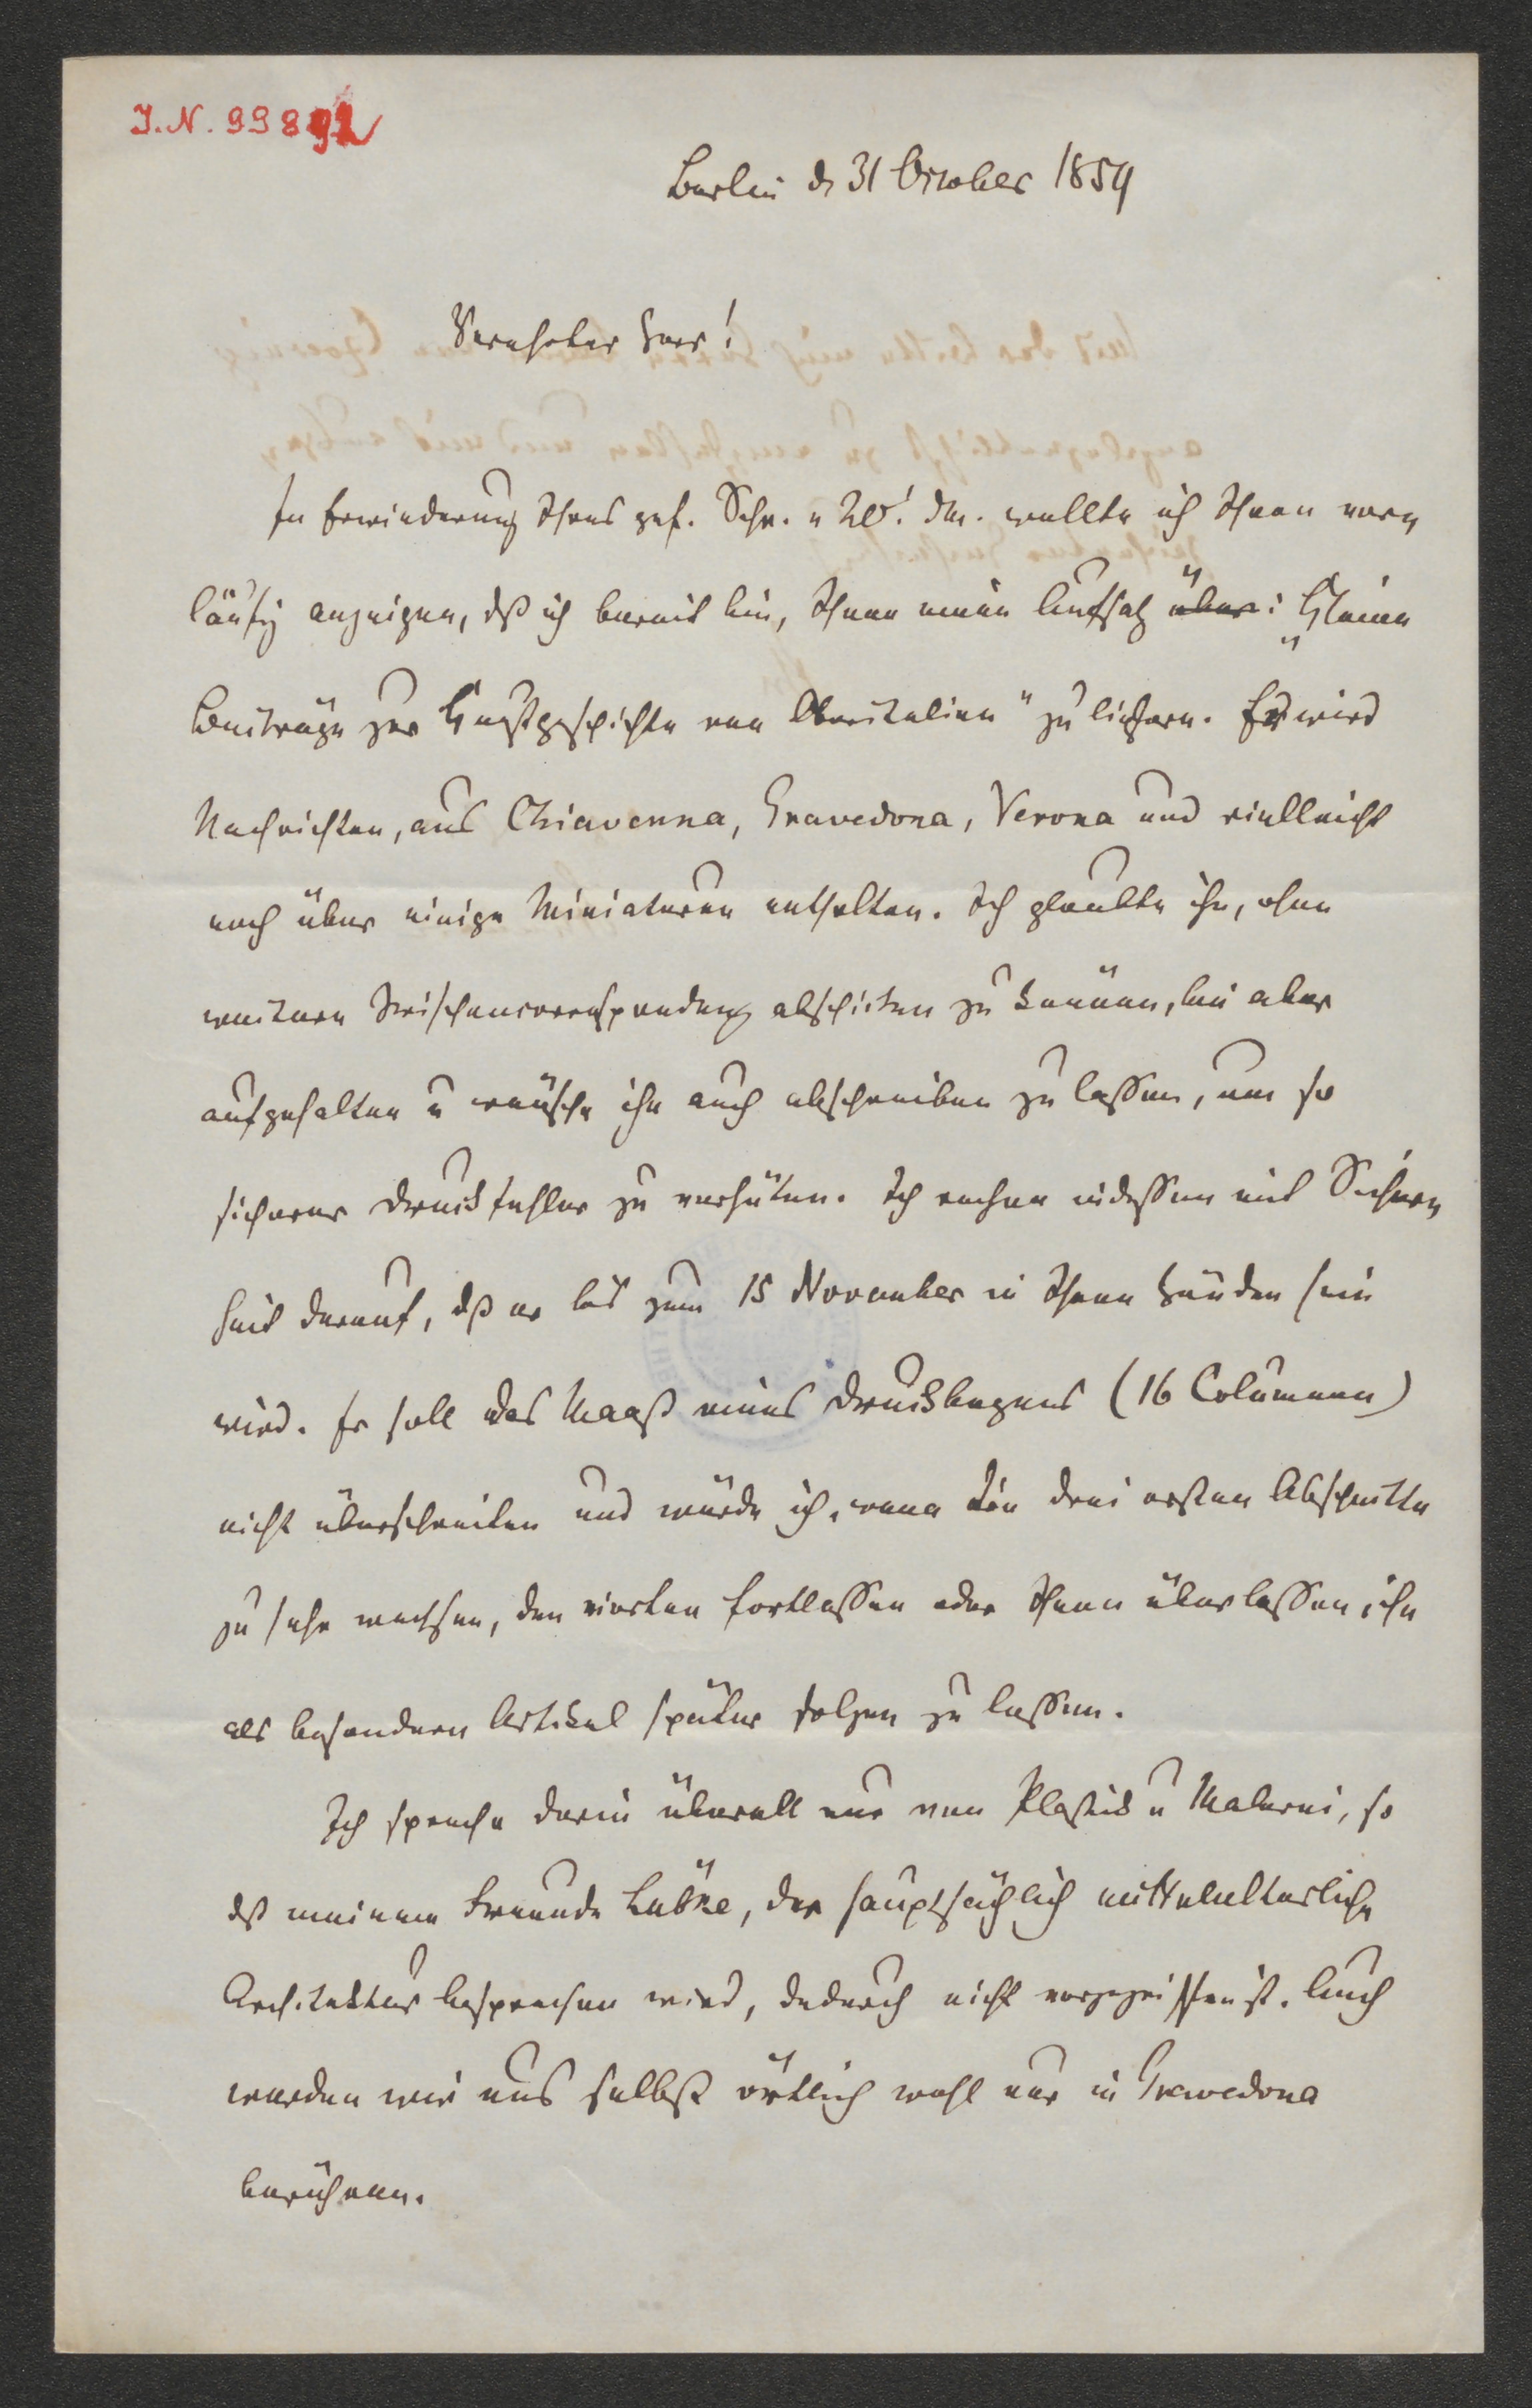 J.N. 998
Berlin d 31 October 1859
Verehrter Herr!
In Erwiederung Ihres gef. Schr. v 20'. dM. wollte ich Ihnen vor-
läufig anzeigen, dß ich bereit bin, Ihnen einen Aufsatz über: „Kleine
Beiträge zur Kunstgeschichte von Oberitalien“ zu liefern. Er wird
Nachrichten, aus Chiavenna, Gravedona, Verona und vielleicht
noch über einige Miniaturen enthalten. Ich glaubte ihn, ohne
weitere Zwischencorrespondenz abschicken zu können, bin aber
aufgehalten u wünsche ihn auch abschreiben zu lassen, um so
sicherer Druckfehler zu verhüten. Ich rechne indessen mit Sicher-
heit darauf, dß er bis zum 15 November in Ihren Händen sein
wird. Er soll das Maaß eines Druckbogens (16 Columnen)
nicht überschreiten und würde ich, wenn die drei ersten Abschnitte
zu sehr wachsen, den vierten fortlassen oder Ihnen überlassen, ihn
als besondern Artikel später folgen zu lassen.
Ich spreche darin überall nur von Plastik u Malerei, so
dß meinem Freunde Lübke, der hauptsächlich mittelalterliche
Architektur besprechen wird, dadurch nicht vorgegriffen ist. Auch
werden wir uns selbst örtlich wohl nur in Gravedona
berühren.